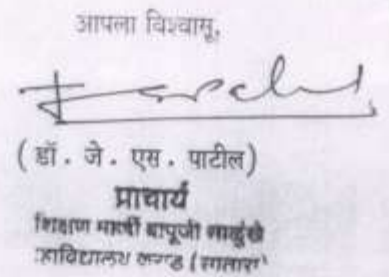 आपला विश्वासू,
(डॉ. जे. एस. पाटील)
प्राचार्य
शिक्षण महर्षी बापूजी साळुंखे
महाविद्यालय कराड (सातारा)